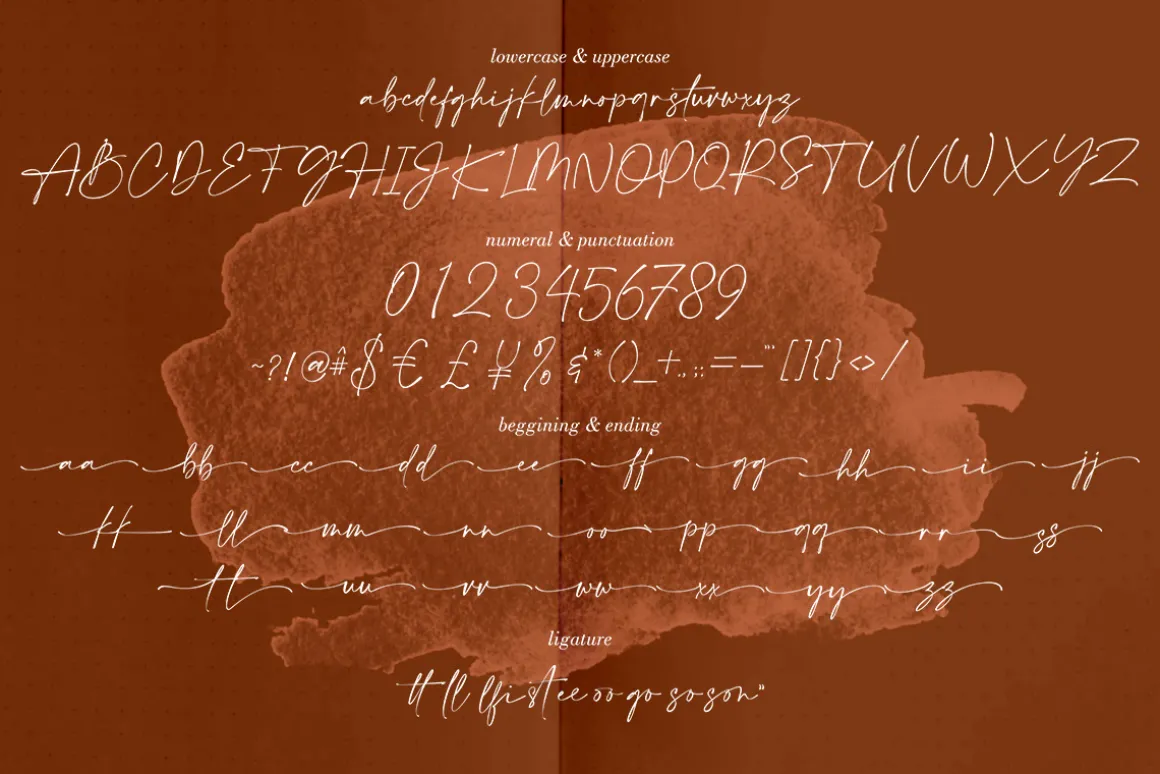 lowercase & uppercase
abcdefghijklmnopqrstuvwxyz
ABCDEFGHIJKLMNOPQRSTUVWXYZ
numeral & punctuation
0123456789
~?!@#$€£¥%&*()_+.,:;=–"'[]{}<>/
beggining & ending
aa bb cc dd ee ff gg hh ii jj
kk ll mm nn oo pp qq rr ss
tt uu vv ww xx yy zz
ligature